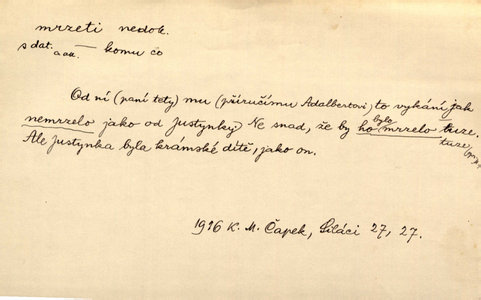 mrzeti nedok.
s dat. a ak. — komu co
Od ní (paní tety) mu (příručímu Adalbertovi) to vykání jak
nemrzelo jako od Justynky) Ne snad, že by ho bylo mrzelo tuze.
Ale Justynka byla krámské dítě, jako on. tuze
1916 K. M. Čapek, Siláci 27, 27.